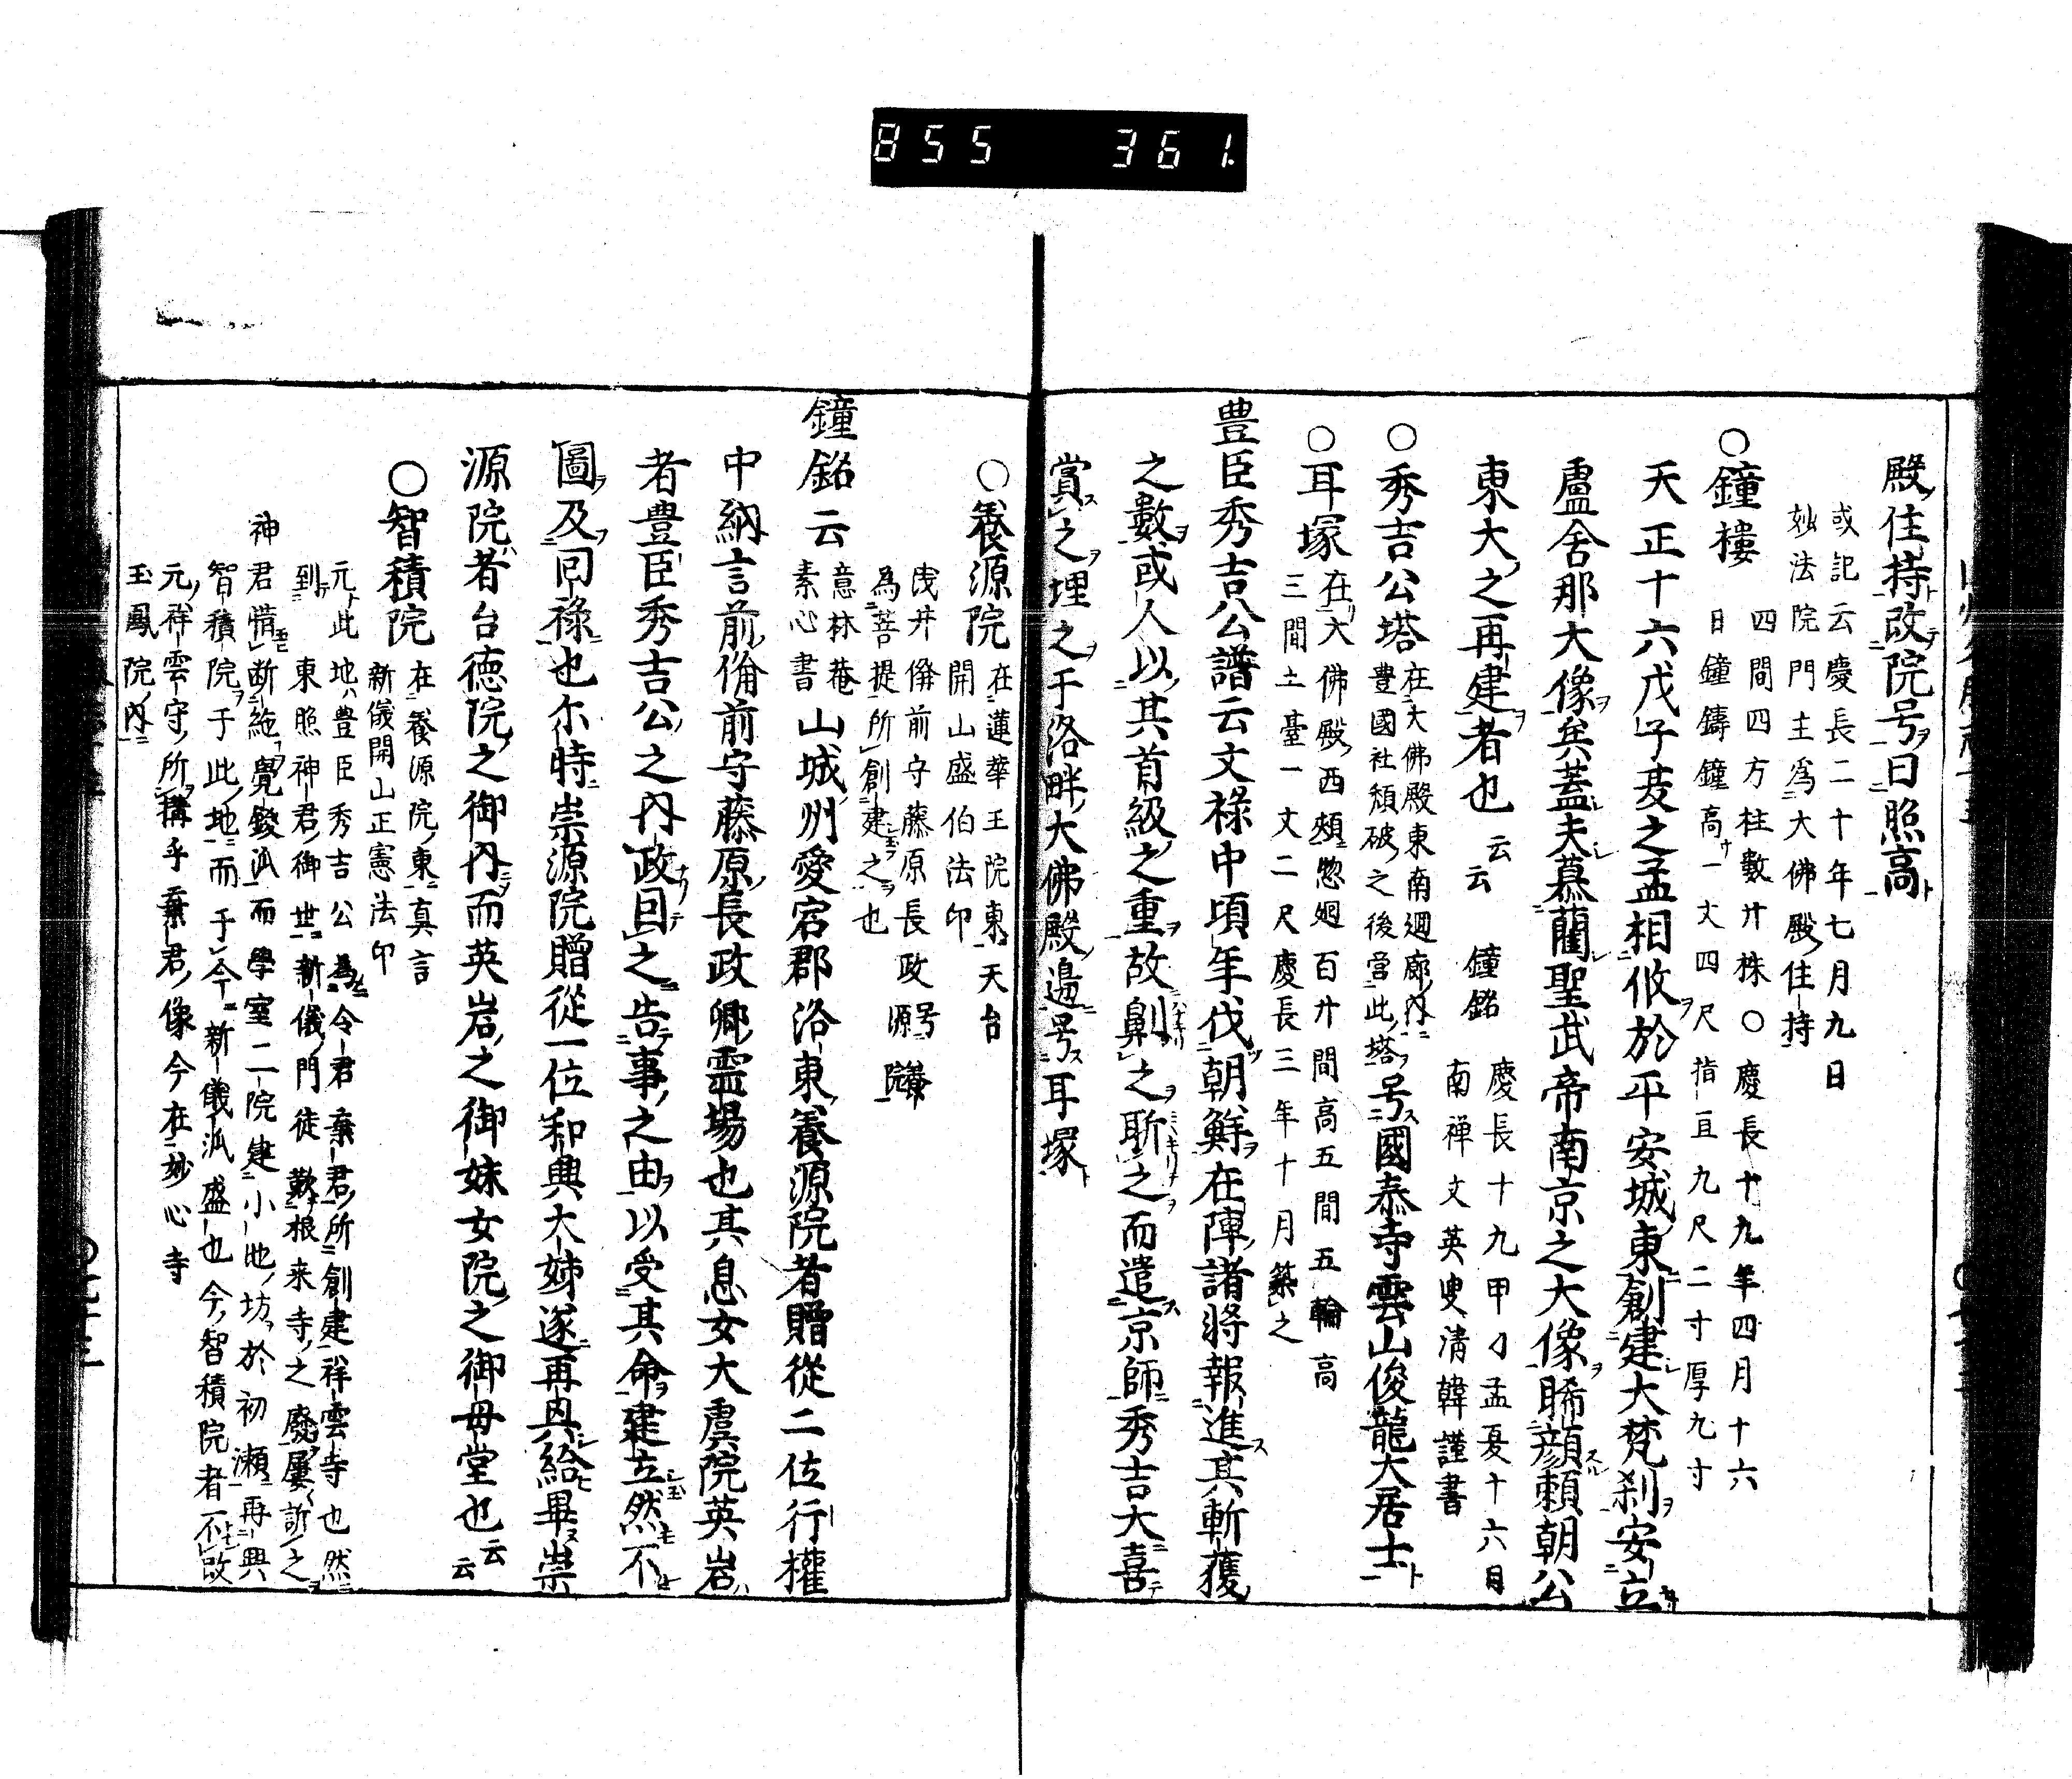 855 361.
殿住持改院号曰照高
或記云慶長二十年七月九日
妙法院門主為大佛殿住持
○鐘樓
四間四方柱數廾株○慶長十九年四月十六
日鐘鑄鐘高一丈四尺指亘九尺二寸厚九寸
天正十六戊子夌之孟相攸於平安城東創建大梵刹安立
盧舍那大像矣蓋夫慕蘭聖武帝南京之大像睎顔頼朝公
東大之再建者也云云 鐘銘
慶長十九甲刁孟夏十六日
南禅文英叟清韓謹書
○秀吉公塔
在大佛殿東南廻廊内
豊國社頽破之後営此塔
号國泰寺雲山俊龍大居士
○耳塚
在大佛殿西頰惣廻百廾間高五間五輪高
三間土臺一丈二尺慶長三年十月築之
豊臣秀吉公譜云文禄中頃年伐朝鮮在陣諸將報進其斬獲
之數或人以其首級之重故劓之聝之而遣京師秀吉大喜
賞之埋之于洛畔大佛殿邊号耳塚
○養源院
在蓮華王院東天台
開山盛伯法印
浅井備前守藤原長政号養源院
為菩提所創建之也
鐘銘云
意林菴
素心書
山城州愛宕郡洛東養源院者贈從二位行權
中納言前備前守藤原長政卿霊場也其息女大虞院英岩
者豊臣秀吉公之内政回之告事之由以受其命建立然不
圖及囘禄也尓時崇源院贈從一位和興大姉遂再興給畢崇
源院者台徳院之御内而英岩之御妹女院之御母堂也云云
○智積院
在養源院東真言
新儀開山正憲法印
元此地豊臣秀吉公為令君棄君所創建祥雲寺也然
到東照神君御世新儀門徒歎根来寺之廢屢訴之
神君惜断絶覺鑁流而學室二院建小池坊於初瀬再興
智積院于此地而于今新儀流盛也今智積院者不改
元祥雲寺所搆乎棄君像今在妙心寺
玉鳳院内